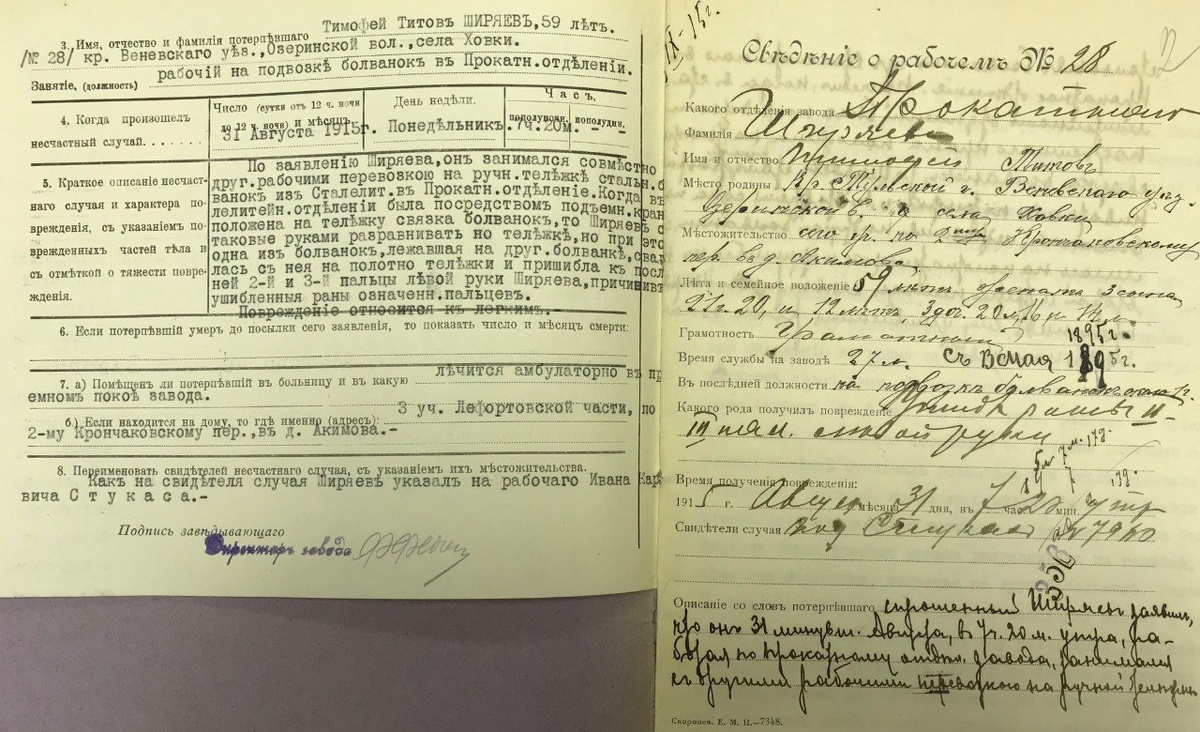 Тимофей Титовъ ШИРЯЕВЪ, 59 лѣтъ.
3. Имя, отчество и фамилія потерпѣвшаго
/№ 28/ кр. Веневскаго уѣз., Озеринской вол., села Ховки.
рабочій на подвозкѣ болванокъ въ Прокатн. отдѣленіи.
Занятіе, (должность)
4. Когда произошелъ несчастный случай.
Число (сутки отъ 12 ч. ночи до 12 ч. ночи) и мѣсяцъ
31 Августа 1915г.
День недѣли.
Понедѣльникъ.
Часъ.
пополуночи.
пополудни.
7ч. 20м. -
5. Краткое описаніе несчаст-
наго случая и характера по-
врежденія, съ указаніемъ по-
врежденныхъ частей тѣла и
съ отмѣткой о тяжести повре-
жденія.
По заявленію Ширяева, онъ занимался совмѣстно
друг. рабочими перевозкою на ручн. тележкѣ стальн. б
ванокъ изъ Сталелит. въ Прокатн. отдѣленіе. Когда въ
лелитейн. отдѣленіи была посредствомъ подъемн. кран
положена на тележку связка болванокъ, то Ширяевъ с
таковые руками разравнивать по тележкѣ, но при это
одна изъ болванокъ, лежавшая на друг. болванкѣ, свар
лась съ нея на полотно тележки и пришибла къ посл
ней 2-й и 3-й пальцы лѣвой руки Ширяева, причинивъ
ушибленныя раны означенн. пальцевъ.
Поврежденіе относится къ легкимъ.
6. Если потерпѣвшій умеръ до посылки сего заявленія, то показать число и мѣсяцъ смерти:
7. а) Помѣщенъ ли потерпѣвшій въ больницу и въ какую
лѣчится амбулаторно въ пр
емномъ покоѣ завода.
б) Если находится на дому, то гдѣ именно (адресъ):
3 уч. Лефортовской части, по
2-му Крончаковскому пер., въ д. Акимова.-
8. Переименовать свидѣтелей несчастнаго случая, съ указаніемъ ихъ мѣстожительства.
Какъ на свидѣтеля случая Ширяевъ указалъ на рабочаго Ивана Кар
вича Стукаса.-
Подпись завѣдывающаго
Директоръ завода
Свѣдѣніе о рабочемъ № 28
Какого отдѣленія завода Прокатнаго
Фамилія Ширяевъ
Имя и отчество Тимофей Титовъ
Мѣсто родины Кр. Тульской г. Веневскаго уѣз.
Озеринской в. села Ховки
Мѣстожительство сего гр. по 2му Крончаковскому
пер. въ д. Акимова
Лѣта и семейное положеніе 59 лѣтъ женатъ 3 сына
Грамотность Грамотный
1895г.
Время службы на заводѣ 27 л. съ 1895г.
Въ послѣдней должности на подвозкѣ болванокъ
Какого рода получилъ поврежденіе ушиб. раны II-
III пал. лѣвой руки
Время полученія поврежденія:
1915 г. Августа мѣсяца 31 дня, въ 7 час. 20 мин. утр
Свидѣтели случая Стукасъ № 7960
Описаніе со словъ потерпѣвшаго спрошенный Ширяевъ заявилъ,
что онъ 31 минувш. Августа, въ 7 ч. 20 м. утра, ра-
боталъ по прокатному отдѣл. завода, занимался
съ другими рабочими перевозкою на ручной тележкѣ
Скоропеч. Е. М. И.—7348.